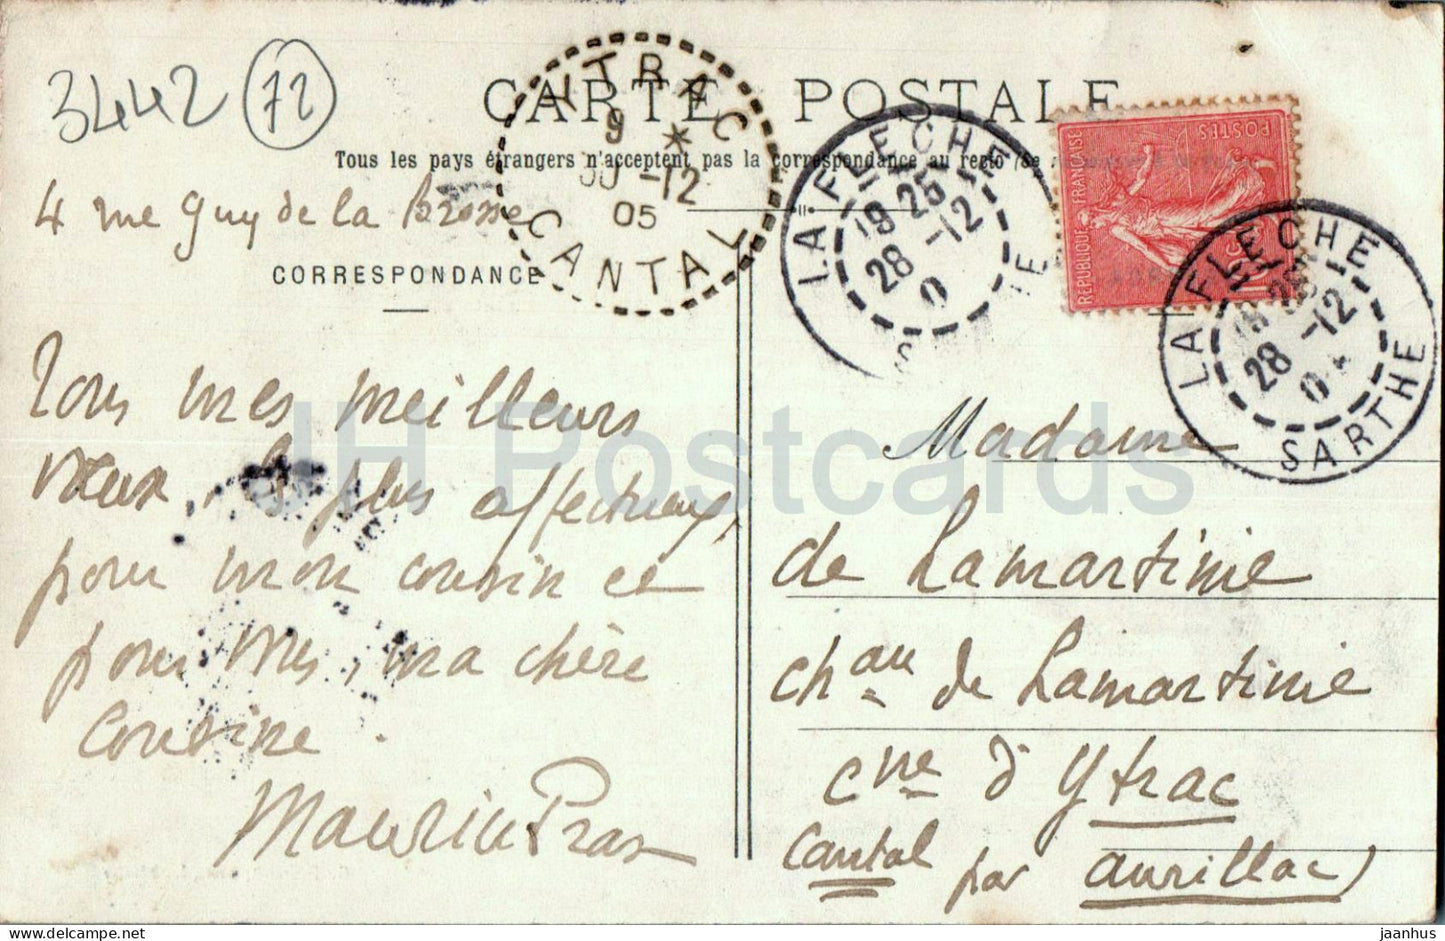 3442 72
CARTE POSTALE
Tous les pays étrangers n'acceptent pas la correspondance au recto (Se
4 rue guy de la Brosse
CORRESPONDANCE
Tous mes meilleurs
vœux, les plus affectueux,
pour mon cousin et
pour mes, ma chère
Cousine.
Maurice Pras
YTRAC
9 *
30 -12
05
CANTAL
LA FLECHE
19 25
28 -12
0
E
REPUBLIQUE FRANÇAISE
POSTES
LA FLECHE
28 -12
0
SARTHE
Madame
de Lamartinie
chau de Lamartinie
cne d'Ytrac
Cantal par Aurillac)
JH Postcards
delcampe.net
jaanhus